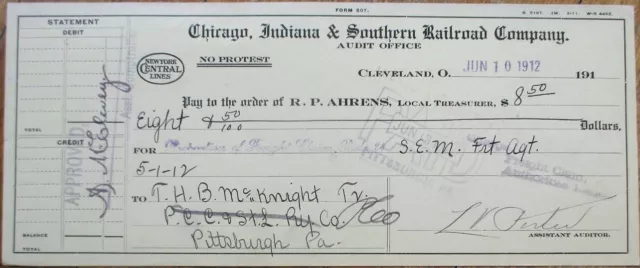 FORM 507.
STATEMENT
DEBIT
TOTAL
CREDIT
BALANCE
TOTAL
APPROVED
Chicago, Indiana & Southern Railroad Company.
AUDIT OFFICE
NEW YORK CENTRAL LINES
NO PROTEST
CLEVELAND, O. JUN 10 1912 191
Pay to the order of R. P. AHRENS, LOCAL TREASURER, $ 8 50
Eight & 50/100 Dollars,
FOR S.E.M. Frt Agt.
5-1-12
TO T. H. B. McKnight Tr.
P. C. C. & St. L. Ry Co.
Pittsburgh Pa.
ASSISTANT AUDITOR.